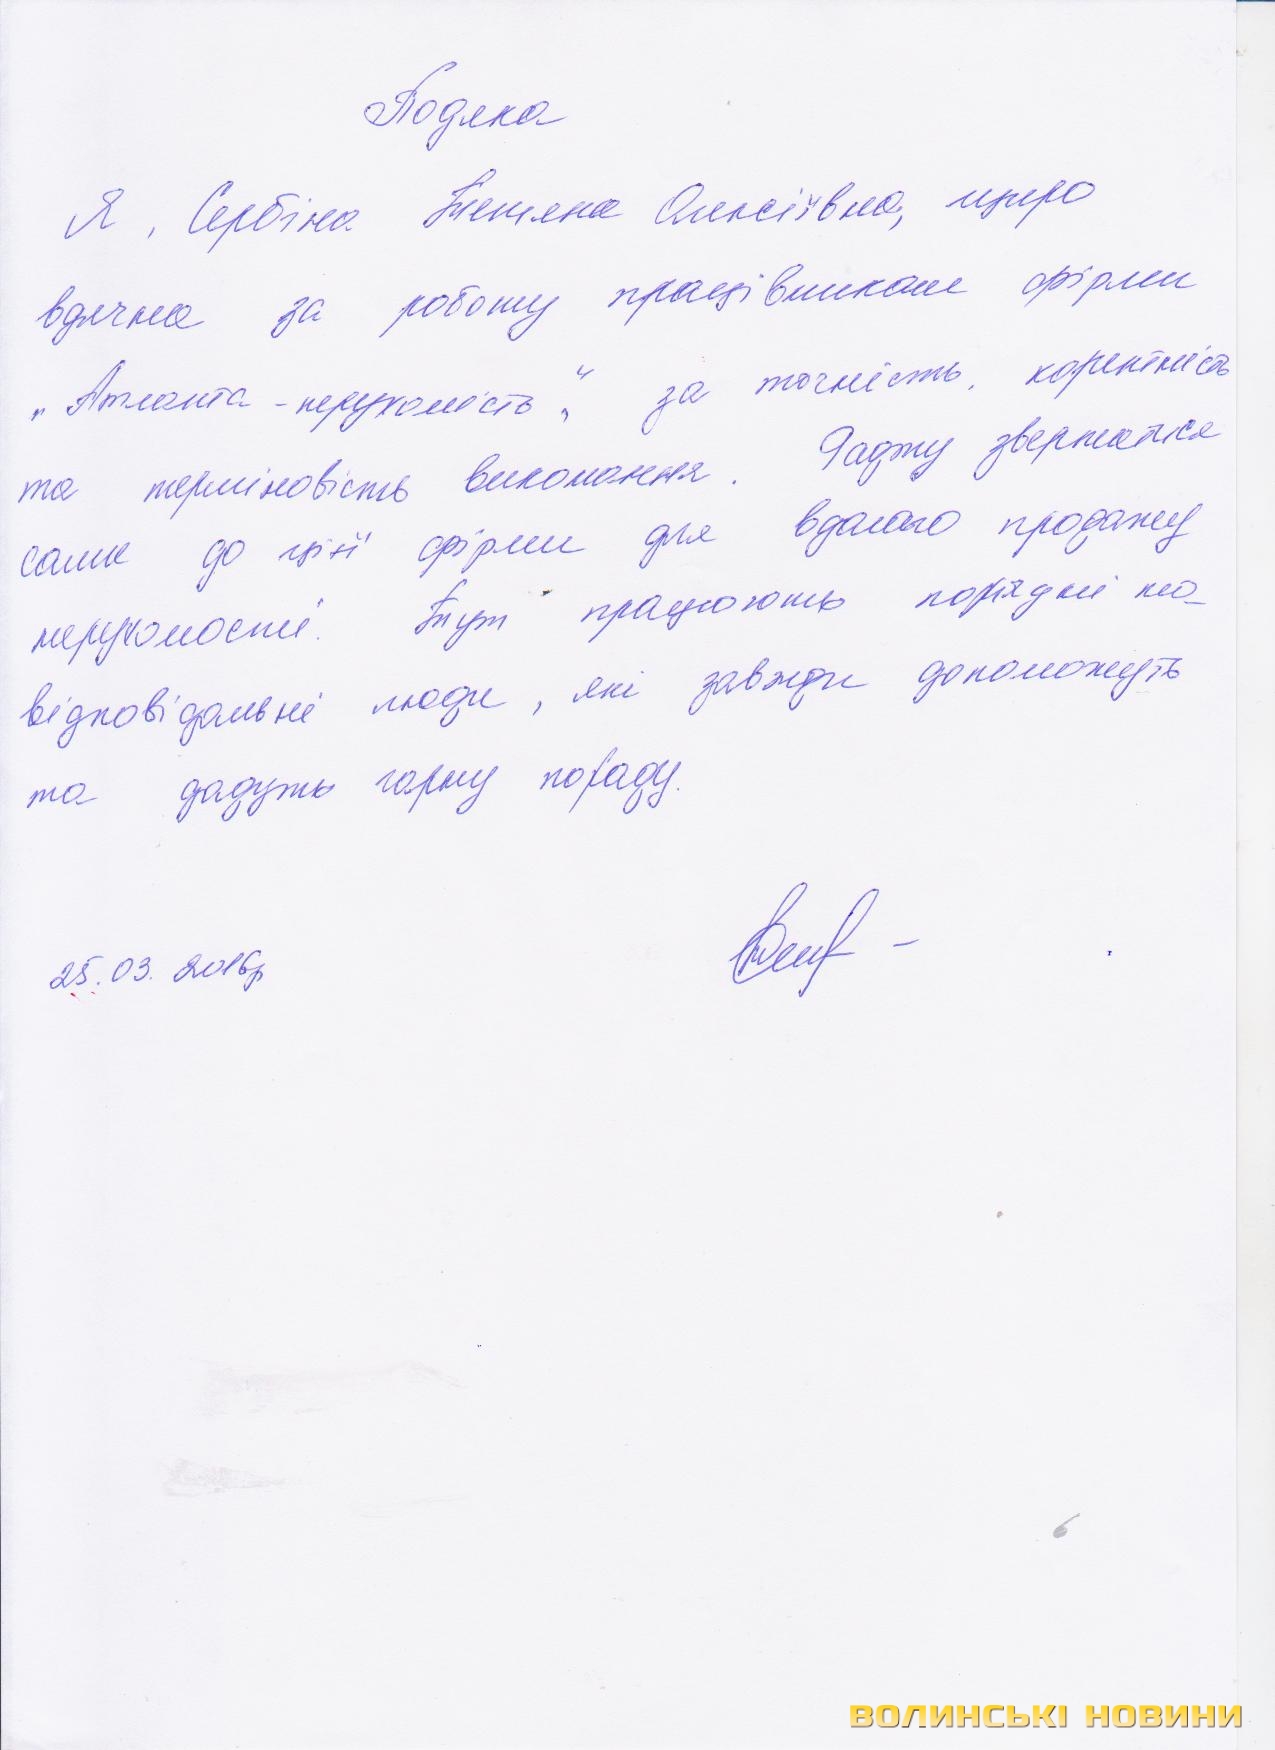 Подяка
Я, Сербіна Тетяна Олексіївна, щиро
вдячна за роботу працівникам фірми
„Атланта - нерухомість“ за точність, коректність
та терміновість виконання. Раджу звертатися
саме до цієї фірми для вдалого продажу
нерухомості. Тут працюють порядні та
відповідальні люди, які завжди допоможуть
та дадуть гарну пораду.
25.03.2016р
6
ВОЛИНСЬКІ НОВИНИ